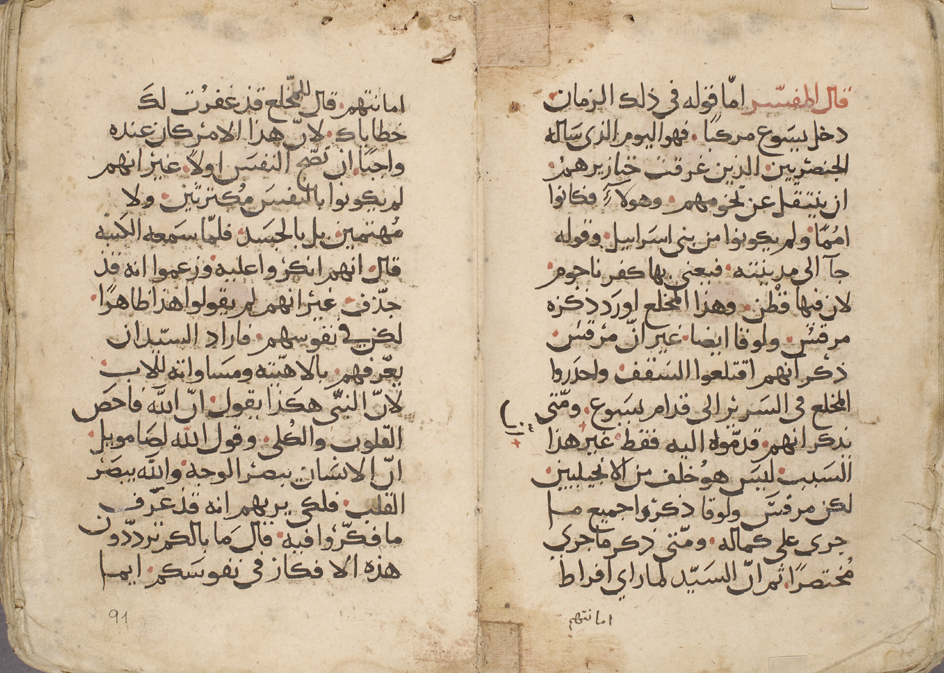 قال المفسّر امّا قوله في ذلك الزمان
دخل يسوع مركبًا. فهو اليوم الذي ساله
الجنصريين الذين غرقت خنازيرهم
ان ينتقل عن تخومهم. وهولاء فكانوا
اممًا. ولم يكونوا من بني اسراييل. وقوله
جآ الى مدينته. فيعني بها كفرناحوم
لان فيها قطن. وهذا المخلع اورد ذكره
مرقس. ولوقا ايضا. غير انّ مرقس
ذكر انهم اقتلعوا السقف. واحدروا
المخلع في السرير الى قدام يسوع. ومتّى
يذكر انهم قدّموه اليه فقط. غير هذا
السبب. ليس هو خلف من الانجيليين
لكن مرقس. ولوقا ذكروا جميع ما
جرى على كماله. ومتّى ذكر ما جرى
مختصرًا. ثم انّ السيّد لما راي افراط
امانتهم
امانتهم. قال للمخلع قد غفرت لك
خطاياك. لانّ هذا الامر كان عنده
واجبًا. ان تصح النفس اولاً. غير انهم
لم يكونوا بالنفس مكترثين. ولا
مهتمين. بل بالجسد. فلمّا سمعه الكتبة
قال. انهم انكروا عليه. وزعموا انه قد
جدّف. غير انهم لم يقولوا هذا ظاهرًا.
لكن في نفوسهم. فاراد السيّد ان
يعرّفهم. بالاهيّته ومساواته للاب
لانّ النبيّ هكذا يقول. انّ الله فاحص
القلوب والكلى. وقول الله لصامويل.
انّ الانسان يبصر الوجه. والله يبصر
القلب. فلكي يريهم انه قد عرف
ما فكّروا فيه. قال ما بالكم تردّدون
هذه الافكار في نفوسكم. ايما
91